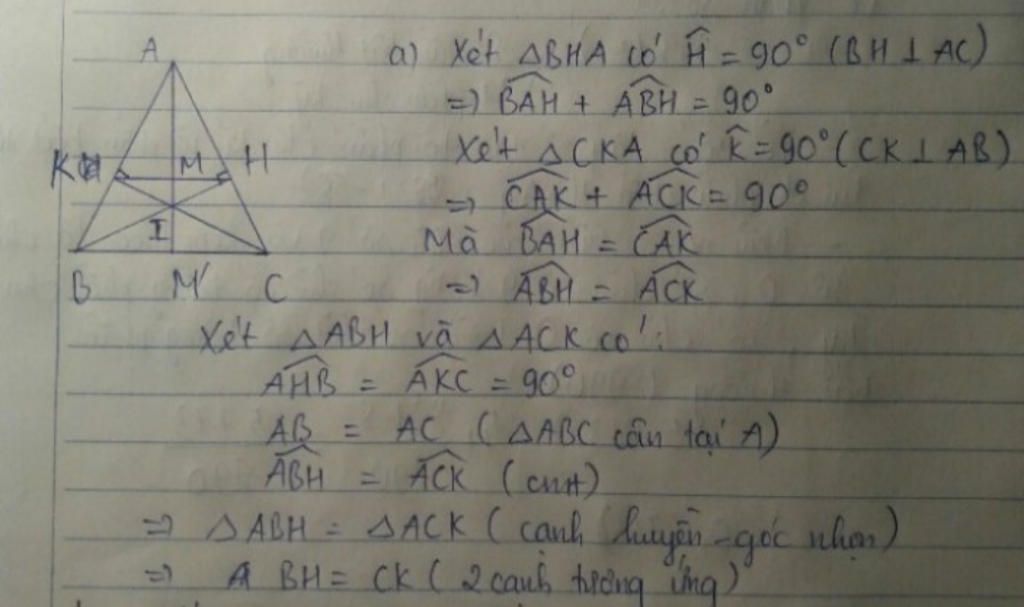 A
K M H
I
B M' C
a) Xét △BHA có Ĥ = 90° (BH ⊥ AC)
=> \widehat{BAH} + \widehat{ABH} = 90°
Xét △CKA có K̂ = 90° (CK ⊥ AB)
=> \widehat{CAK} + \widehat{ACK} = 90°
Mà \widehat{BAH} = \widehat{CAK}
=> \widehat{ABH} = \widehat{ACK}
Xét △ABH và △ACK có:
\widehat{AHB} = \widehat{AKC} = 90°
AB = AC (△ABC cân tại A)
\widehat{ABH} = \widehat{ACK} (cmt)
=> △ABH = △ACK (cạnh huyền - góc nhọn)
=> BH = CK (2 cạnh tương ứng)